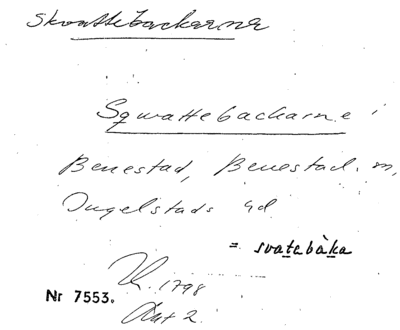 Skvattebackarna
Sqwattebackarne
Benestad, Benestad. sn,
Ingelstads hd
= svatebàka
1798
Nr 7553.
Akt 2